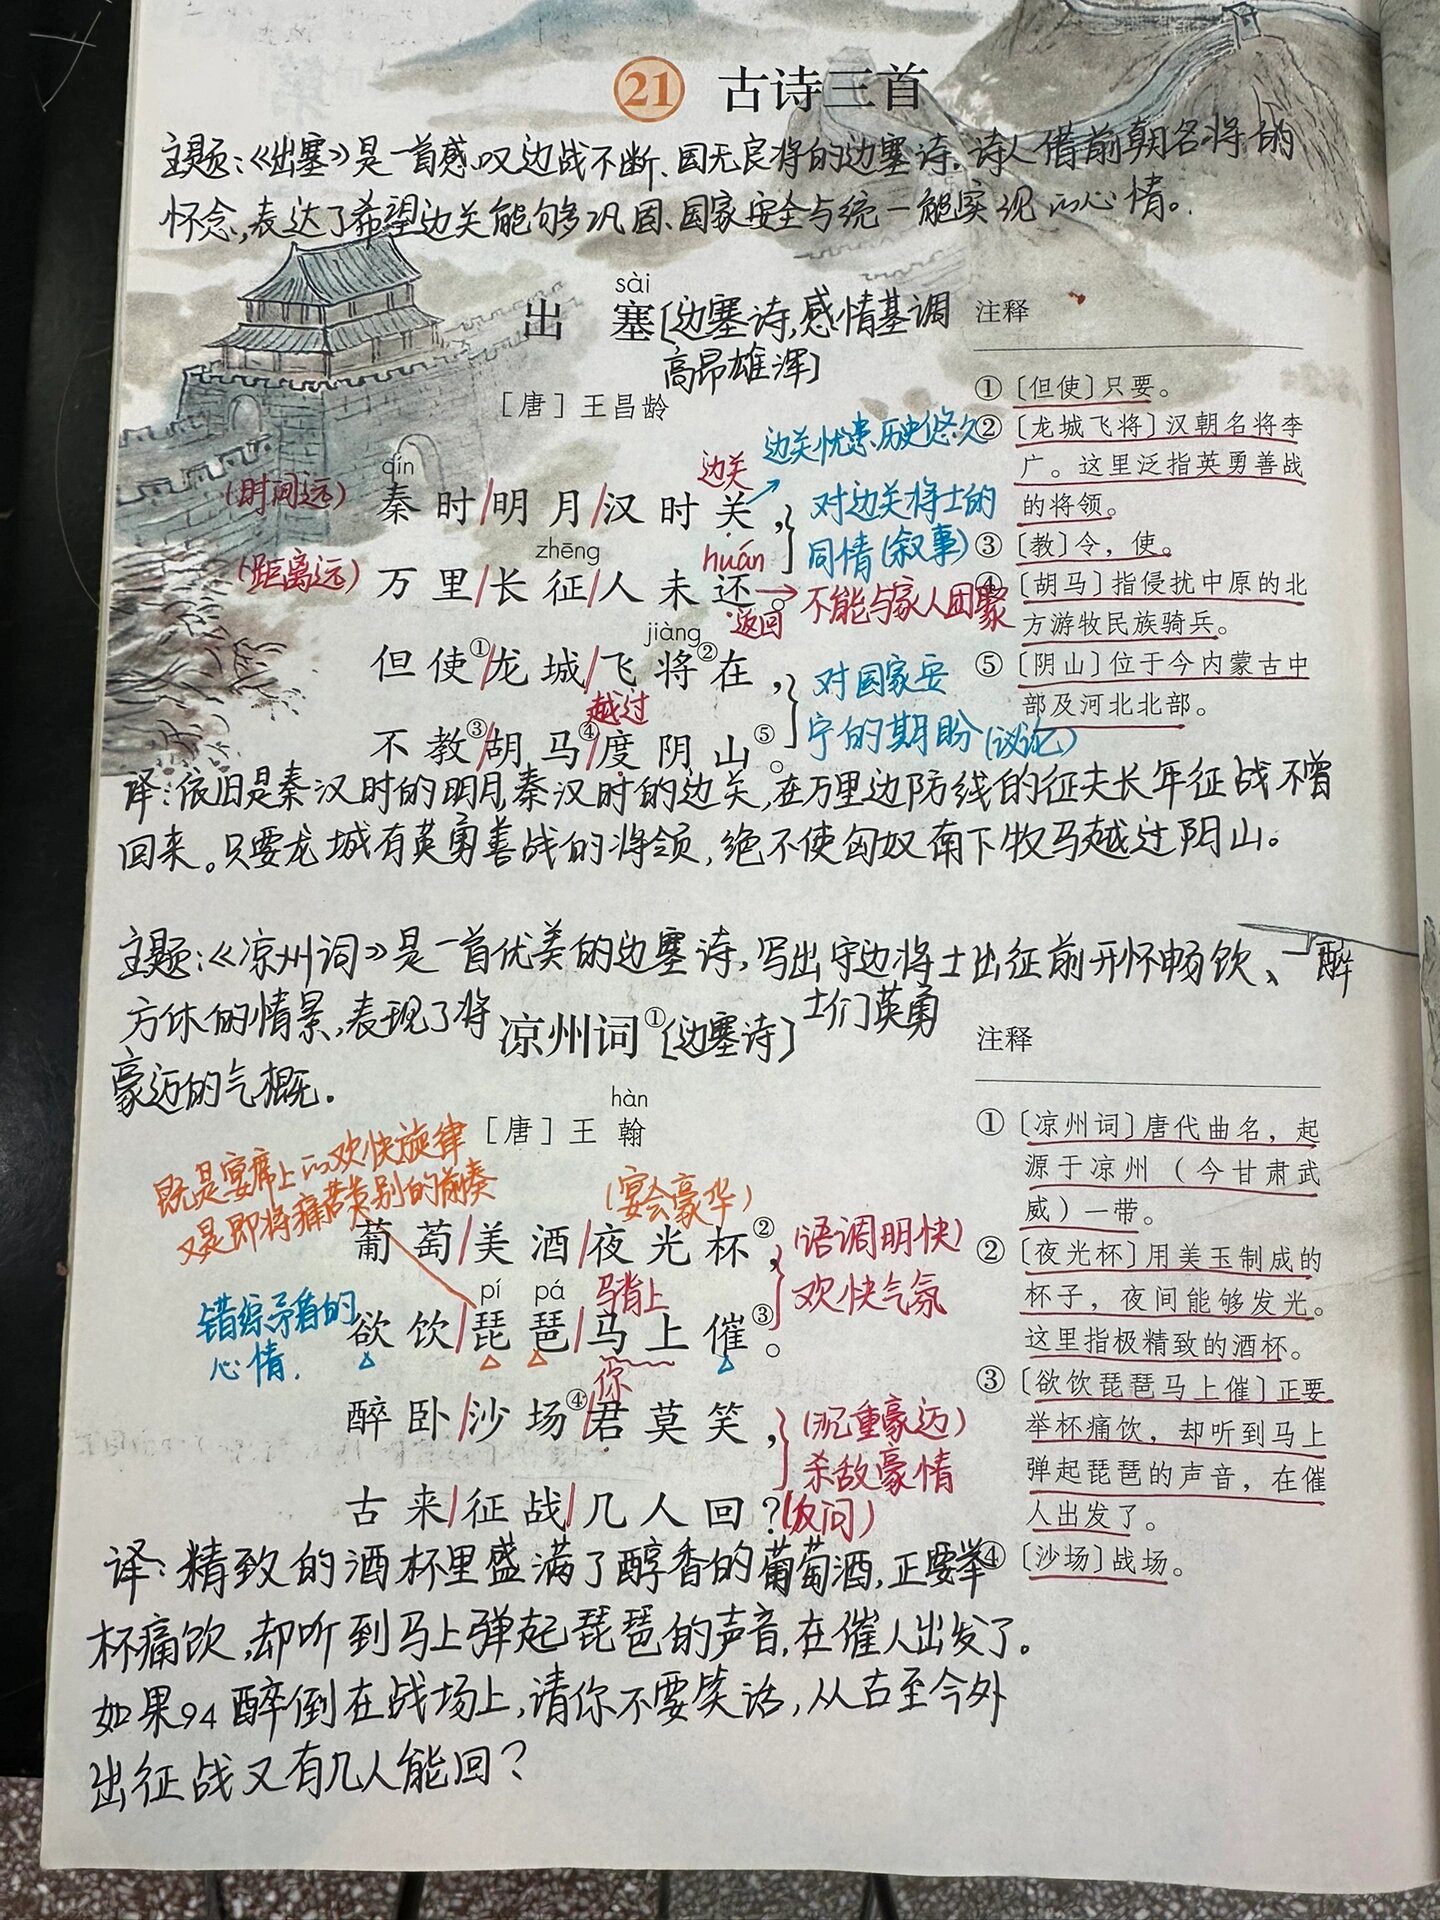 21 古诗三首
主题:《出塞》是一首感叹边战不断、国无良将的边塞诗。诗人借前朝名将的
怀念,表达了希望边关能够巩固、国家安全与统一能实现的心情。
sài
出塞[边塞诗,感情基调
高昂雄浑]
[唐]王昌龄
边关忧患、历史悠久
边关
qín
(时间远) 秦时/明月/汉时关,
对边关将士的
同情(叙事)
zhēng huán
(距离远) 万里/长征/人未还。→不能与家人团聚
返回
jiàng
但使①/龙城/飞将②在,
对国家安
宁的期盼(议论)
越过
不教③/胡马④/度阴山⑤。
注释
①〔但使〕只要。
②〔龙城飞将〕汉朝名将李
广。这里泛指英勇善战
的将领。
③〔教〕令,使。
④〔胡马〕指侵扰中原的北
方游牧民族骑兵。
⑤〔阴山〕位于今内蒙古中
部及河北北部。
译:依旧是秦汉时的明月,秦汉时的边关,在万里边防线的征夫长年征战不曾
回来。只要龙城有英勇善战的将领,绝不使匈奴南下牧马越过阴山。
主题:《凉州词》是一首优美的边塞诗,写出守边将士出征前开怀畅饮、一醉
方休的情景,表现了将士们英勇
豪迈的气概.
凉州词①[边塞诗]
hàn
[唐]王翰
既是宴席上的欢快旋律
又是即将痛苦离别的前奏
(宴会豪华)
葡萄/美酒/夜光杯②,
(语调明快)
欢快气氛
pí pá
马背上
错综矛盾的
心情.
欲饮/琵琶/马上催③。
你
醉卧/沙场④/君莫笑,
(沉重豪迈)
杀敌豪情
古来/征战/几人回?(反问)
注释
①〔凉州词〕唐代曲名,起
源于凉州(今甘肃武
威)一带。
②〔夜光杯〕用美玉制成的
杯子,夜间能够发光。
这里指极精致的酒杯。
③〔欲饮琵琶马上催〕正要
举杯痛饮,却听到马上
弹起琵琶的声音,在催
人出发了。
④〔沙场〕战场。
译:精致的酒杯里盛满了醇香的葡萄酒,正要举
杯痛饮,却听到马上弹起琵琶的声音,在催人出发了。
如果94醉倒在战场上,请你不要笑话,从古至今外
出征战又有几人能回?